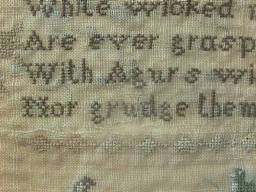 While wicked
Are ever grasp
With Agurs wi
Nor grudge them